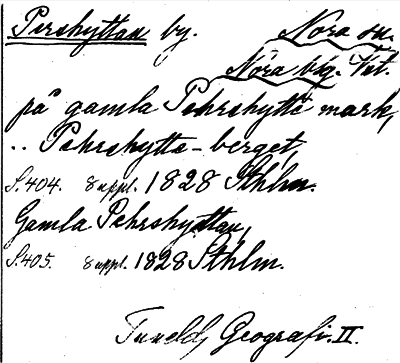 Pershyttan by. Nora sn.
Nora bg. Vst.
på gamla Pehrshytte mark,
.. Pehrshytte-berget,
S. 404. 8 uppl. 1828 Sthlm.
Gamla Pehrshyttan,
S. 405. 8 uppl. 1828 Sthlm.
Tunelds Geografi. II.